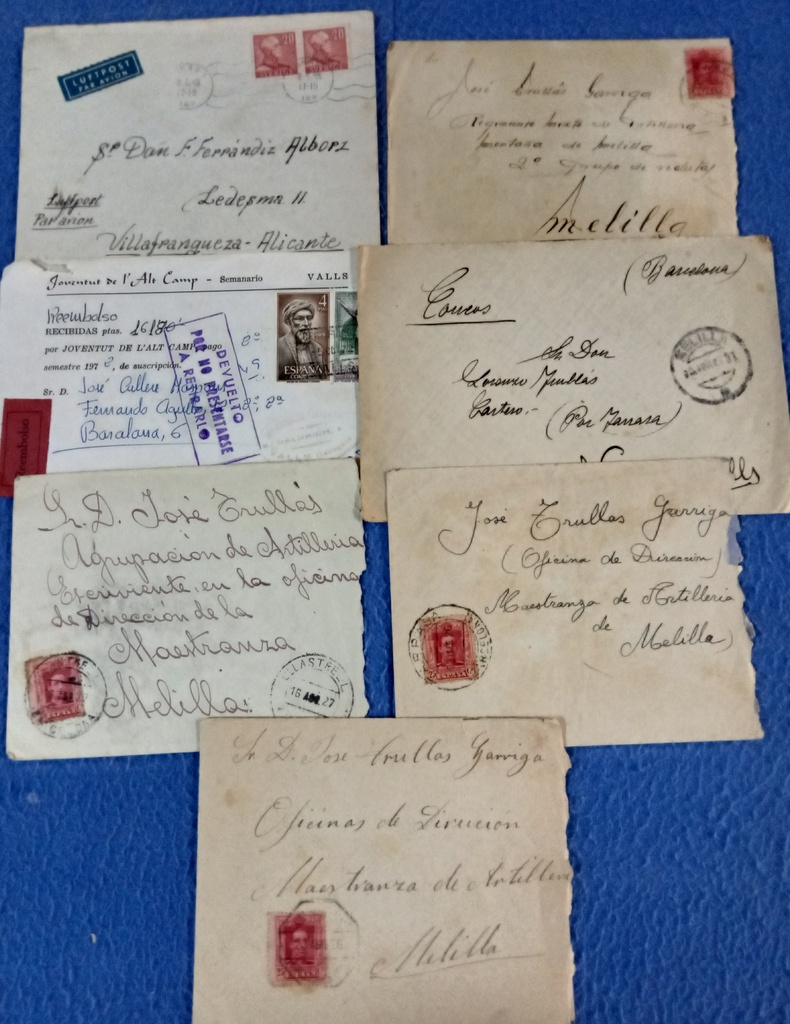 LUFTPOST
PAR AVION
20 20
SVERIGE SVERIGE
17-18
Sr. Don F. Ferrándiz Alborz
Ledesma 11.
Luftpost
Par avion
Villafranqueza-Alicante
José Trullás Garriga
Melilla
Joventut de l'Alt Camp - Semanario VALLS
Reembolso
RECIBIDAS ptas.
por JOVENTUT DE L'ALT CAMP, pago
semestre 197 , de suscripción.
Sr. D. José
Fernando
Barcelona, 6
DEVUELTO
POR NO PRESENTARSE
A RETIRARLO
4
ESPAÑA
CORREOS
Reembolso
(Barcelona)
Sr. Don
Lorenzo Trullás
Cartero.- (Por Tarrasa)
MELILLA
Sr. D. José Trullás
Agrupación de Artilleria
Escriviente en la oficina
de Dirección de la
Maestranza
Melilla
16 AGO. 27
José Trullas Garriga
(Oficina de Dirección)
Maestranza de Artilleria
de
Melilla)
Sr. D. Jose Trullas Garriga
Oficinas de Direccion
Maestranza de Artilleria
Melilla